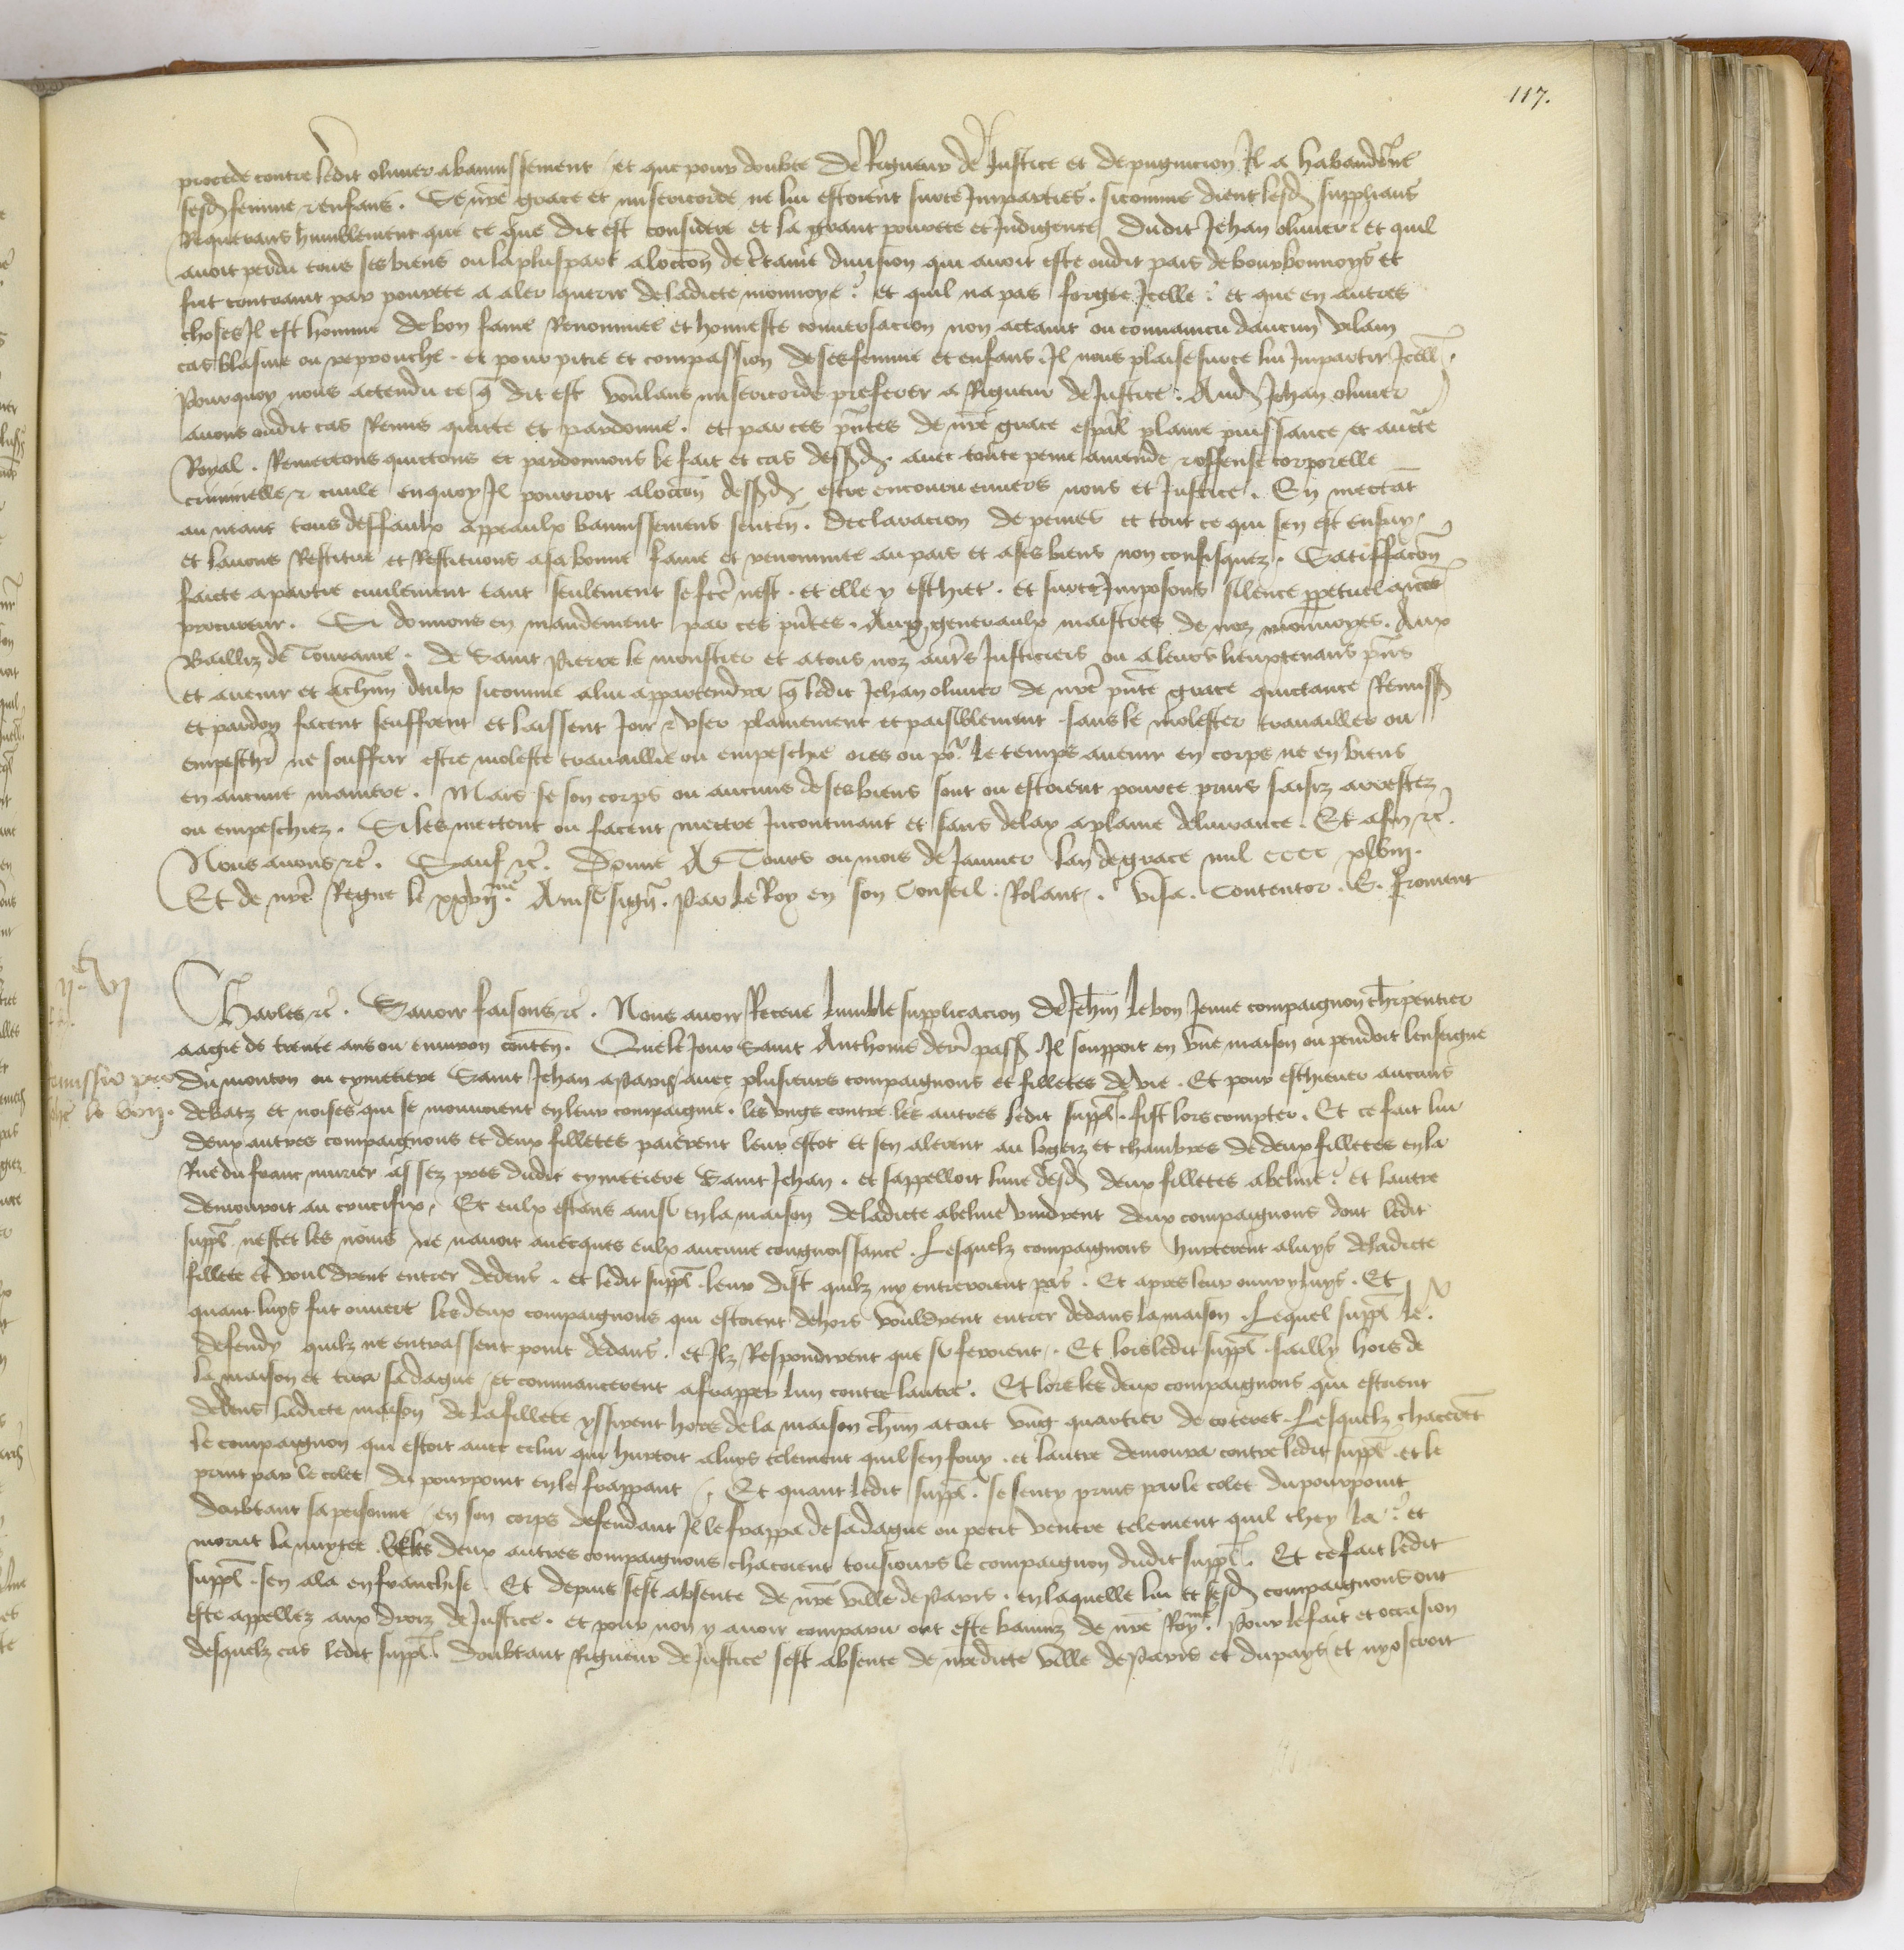 117.
procede contre ledit olivier a bannissement / et que pour doubte de Rigueur de Justice et de pugnicion Il a habandonné
sesd femme & enfans . Se nre grace et misericorde ne lui estoient sur ce Imparties . sicomme dient lesd supplians
Requerans humblement que ce que dit est considere et la grant povrete et Indigence dudit Jehan olivier et quil
avoit perdu tous ses biens ou la pluspart a loccon de certaine division qui avoit este oudit pais de bourbonnoys et
fut contraint par povrete a aler querir de ladicte monnoye : et quil na pas forgee Icelle : et que en autres
choses Il est homme de bon fame Renommee et honneste conversacion non actaint ou convaincu daucun vilain
cas blasme ou reprouche . et pour pitie et compassion de ses femme et enfans . Il nous plaise sur ce lui Impartir Icell .
Pourquoy nous actendu ce q dit est voulans misericorde preferer a Rigueur de Justice . Aud Jehan olivier
avons oudit cas Remis quitte et pardonne . et par ces pntes de nre grace espal plaine puissance et aucte
Royal . Remectons quictons et pardonnons le fait et cas dessd . avec toute peine amende & offense corporelle
criminelle & civile en quoy Il pourroit a loccon dessd estre encouru envers nous et Justice . En mectat
au neant tous deffaulx appeaulx bannissemens senten . declaracion de peines et tout ce qui sen est ensuy
et lavons Restitue et Restituons a sa bonne fame et renommee au pais et a ses biens non confisquez . Satiffacon
faicte a partie civilement tant seulement se fce nest . et elle y eschiet . et sur ce Imposons silence ppetuel a nre
procureur . Si donnons en mandement par ces pntes . Aux generaulx maistres de noz monnoyes . Aux
Bailliz de Touraine . de Saint Pierre le monstier et a tous noz autres Justiciers ou a leurs lieuxtenans pns
et avenir et a chun deulx sicomme a lui appartendra q ledit Jehan olivier de nre pnte grace quictance Remiss
et pardon facent seuffrent et laissent Joir & user plainement et paisiblement sans le molester travailler ou
empescher ne souffrir estre moleste travaillie ou empesche ores ou pour le temps avenir en corps ne en biens
en aucune maniere . Mais se son corps ou aucuns de ses biens sont ou estoient pour ce prins saisiz arrestez
ou empeschiez . Si les mettent ou facent mettre Incontinant et sans delay a plaine delivrance . Et afin &c .
Nous avons &c . Sauf &c . Donne A Tours ou mois de Janvier lan de grace mil cccc xlviii .
Et de nre Regne le xxvii me . Ainsi sign . Par le Roy en son Conseil . Rolant . Visa . Contentor . E . froment
iic vi
Charles &c . Savoir faisons &c . Nous avoir Receue lumble supplicacion de Jehin le bon Jeune compaignon charpentier
aagie de trente ans ou environ conten . Que le Jour Saint Anthoine deri pass . Il souppoit en une maison ou pendoit lenseigne
du mouton ou cymetiere Saint Jehan a Paris / avec plusieurs compaignons et filletes de vie . Et pour eschever aucuns
debatz et noises qui se mouvoient en leur compaignie . les ungs contre les autres ledit suppl . fist lors compter . Et ce fait lui
deux autres compaignons et deux filletes paierent leur escot et sen alerent au logeiz et chambres de deux filletes en la
Rue du franc murier assez pres dudit cymetiere Saint Jehan . et sappelloit lune desd deux filletes abeline : et lautre
demouroit au crucifix . Et eulx estans ainsi en la maison de ladicte abeline vindrent deux compaignons dont ledit
suppl . ne scet les noms ne navoit avecques eulx aucune congnoissance . Lesquelz compaignons hurterent a luys de ladicte
fillete et vouldrent entrer dedens . et ledit suppl . leur dist quilz ny entreroient pas . Et apres leur ouvry luys . Et
quant luys fut ouvert les deux compaignons qui estoient dehors vouldrent entrer dedans la maison . Lequel suppl le
defendy quilz ne entrassent point dedans . et Ilz Respondirent que si feroient . Et lors ledit suppl . sailly hors de
la maison et tira sa dague / et commancerent a frapper lun contre lautre . Et lors les deux compaignons qui estoient
dedens ladicte maison de la fillete yssirent hors de la maison chun atout ung quartier de coteret . Lesquelz chacerent
le compaignon qui estoit avec celui qui hurtoit a luys telement quil sen fouy . et lautre demoura contre ledit suppl . et le
print par le colet du pourpoint en le frappant / . Et quant ledit suppl . se senty prins par le colet du pourpoint
doubtant sa personne / en son corps defendant Il le frappa de sa dague ou petit ventre telement quil chey la : et
morut la nuytee . Et les deux autres compaignons chacoient tousiours le compaignon dudit suppl . Et ce fait ledit
suppl . sen ala en franchise . Et depuis sest absente de nre ville de Paris . en laquelle lui et sesd compaignons ont
este appellez aux droiz de Justice . et pour non y avoir comparu ont este banniz de nre Royme . Pour le fait et occasion
desquelz cas ledit suppl . doubtant Rigueur de Justice sest absente de nredicte ville de Paris et du pays / et ny oseroit